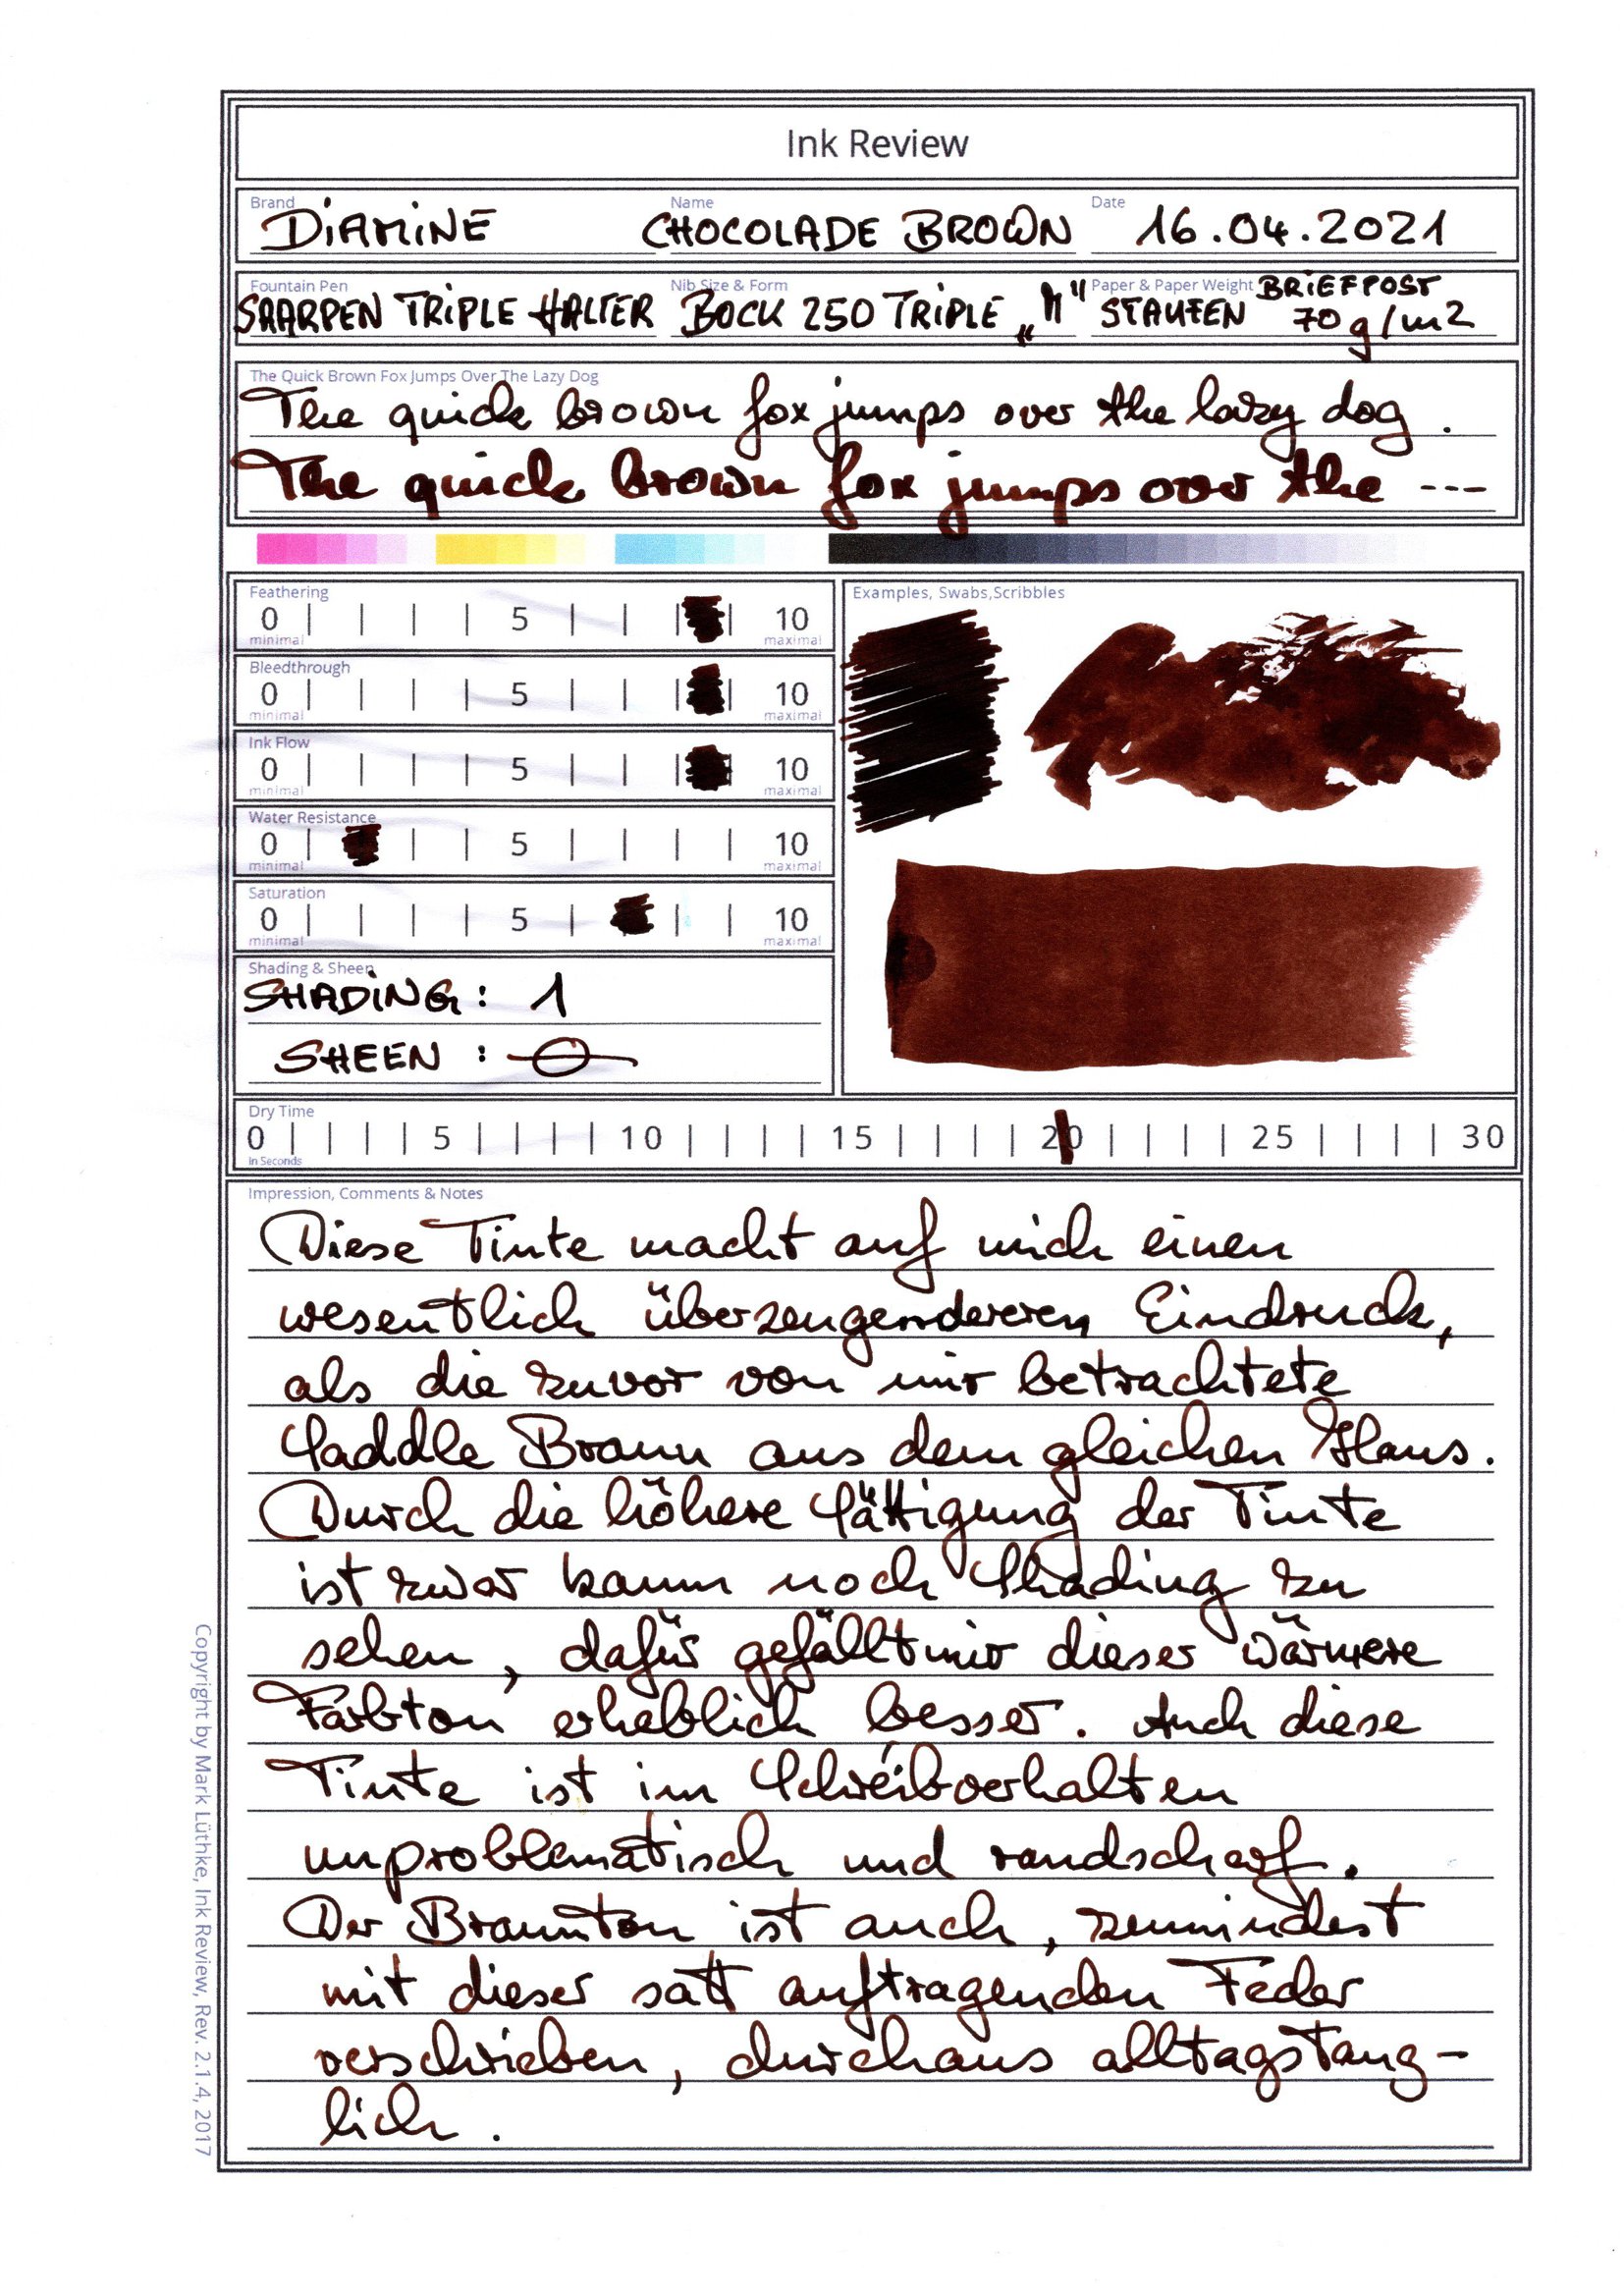 Ink Review
Brand Name Date
DiAMiNE CHOCOLADE BROWN 16.04.2021
Fountain Pen Nib Size & Form Paper & Paper Weight BRiEFPOST
SAARPEN TRiPLE HALTER BOCK 250 TRiPLE „M" STAUFEN 70 g/m2
The Quick Brown Fox Jumps Over The Lazy Dog
The quick brown fox jumps over the lazy dog.
The quick brown fox jumps over the ---
Feathering
0 | | | | 5 | | | | 10
minimal maximal
Bleedthrough
0 | | | | 5 | | | | 10
minimal maximal
Ink Flow
0 | | | | 5 | | | | 10
minimal maximal
Water Resistance
0 | | | 5 | | | | 10
minimal maximal
Saturation
0 | | | | 5 | | | 10
minimal maximal
Shading & Sheen
SHADiNG: 1
SHEEN : 0
Examples, Swabs,Scribbles
Dry Time
0 | | | | 5 | | | | 10 | | | | 15 | | | | 20 | | | | 25 | | | | 30
In Seconds
Impression, Comments & Notes
Diese Tinte macht auf mich einen
wesentlich überzeugendereren Eindruck,
als die zuvor von mir betrachtete
Saddle Braun aus dem gleichen Haus.
Durch die höhere Sättigung der Tinte
ist zwar kaum noch Shading zu
sehen, dafür gefällt mir dieser wärmere
Farbton erheblich besser. Auch diese
Tinte ist im Schreibverhalten
unproblematisch und randscharf.
Der Braunton ist auch, zumindest
mit dieser satt auftragenden Feder
verschrieben, durchaus alltagstaug-
lich.
Copyright by Mark Lüthke, Ink Review, Rev. 2.1.4, 2017